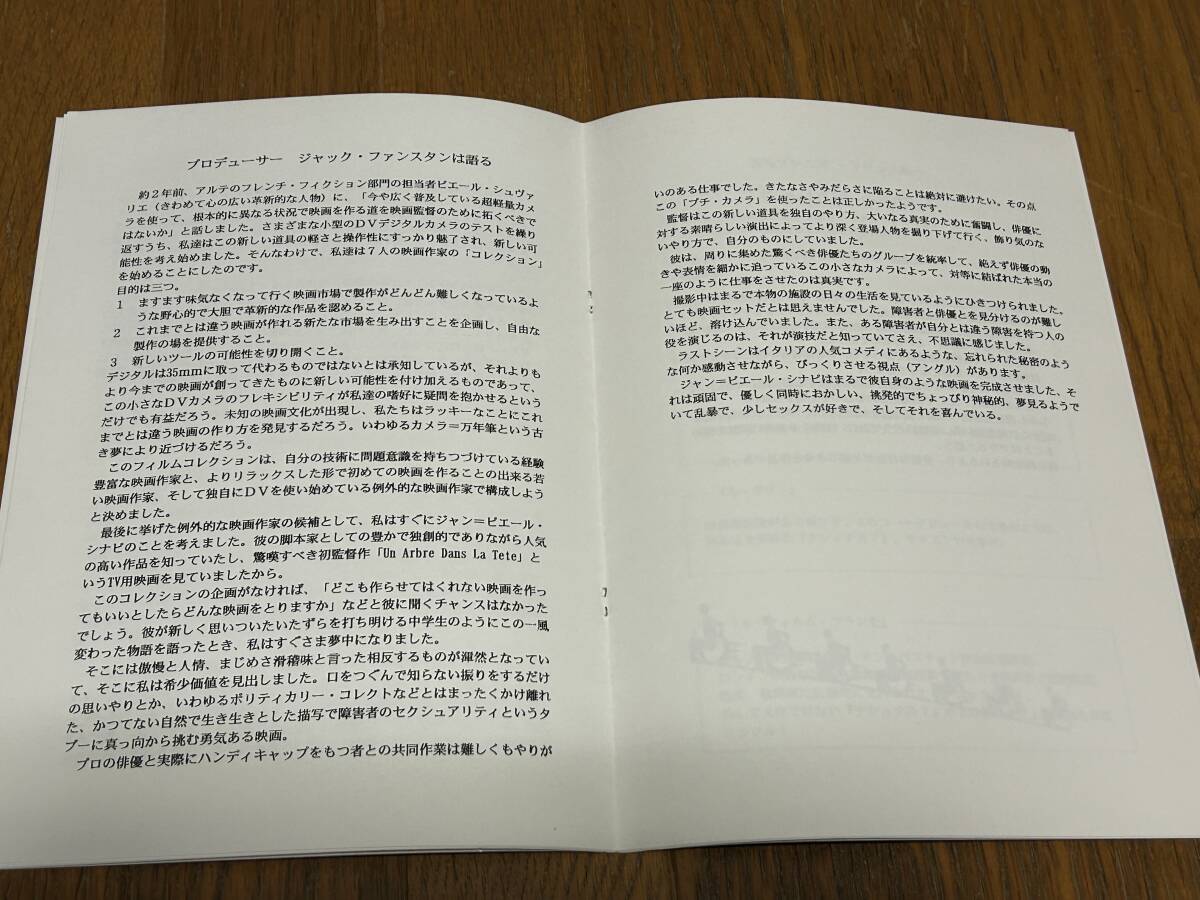 プロデューサー　ジャック・ファンスタンは語る
約２年前、アルテのフレンチ・フィクション部門の担当者ピエール・シュヴァ
リエ（きわめて心の広い革新的な人物）に、「今や広く普及している超軽量カメ
ラを使って、根本的に異なる状況で映画を作る道を映画監督のために拓くべきで
はないか」と話しました。さまざまな小型のＤＶデジタルカメラのテストを繰り
返すうち、私達はこの新しい道具の軽さと操作性にすっかり魅了され、新しい可
能性を考え始めました。そんなわけで、私達は７人の映画作家の「コレクション」
を始めることにしたのです。
目的は三つ。
１　ますます味気なくなって行く映画市場で製作がどんどん難しくなっているよ
うな野心的で大胆で革新的な作品を認めること。
２　これまでとは違う映画が作れる新たな市場を生み出すことを企画し、自由な
製作の場を提供すること。
３　新しいツールの可能性を切り開くこと。
デジタルは35mmに取って代わるものではないとは承知しているが、それよりも
より今までの映画が創ってきたものに新しい可能性を付け加えるものであって、
この小さなＤＶカメラのフレキシビリティが私達の嗜好に疑問を抱かせるという
だけでも有益だろう。未知の映画文化が出現し、私たちはラッキーなことにこれ
までとは違う映画の作り方を発見するだろう。いわゆるカメラ＝万年筆という古
き夢により近づけるだろう。
このフィルムコレクションは、自分の技術に問題意識を持ちつづけている経験
豊富な映画作家と、よりリラックスした形で初めての映画を作ることの出来る若
い映画作家、そして独自にＤＶを使い始めている例外的な映画作家で構成しよう
と決めました。
最後に挙げた例外的な映画作家の候補として、私はすぐにジャン＝ピエール・
シナピのことを考えました。彼の脚本家としての豊かで独創的でありながら人気
の高い作品を知っていたし、驚嘆すべき初監督作「Un Arbre Dans La Tete」と
いうTV用映画を見ていましたから。
このコレクションの企画がなければ、「どこも作らせてはくれない映画を作っ
てもいいとしたらどんな映画をとりますか」などと彼に聞くチャンスはなかった
でしょう。彼が新しく思いついたいたずらを打ち明ける中学生のようにこの一風
変わった物語を語ったとき、私はすぐさま夢中になりました。
そこには傲慢と人情、まじめさ滑稽味と言った相反するものが渾然となってい
て、そこに私は希少価値を見出しました。口をつぐんで知らない振りをするだけ
の思いやりとか、いわゆるポリティカリー・コレクトなどとはまったくかけ離れ
た、かつてない自然で生き生きとした描写で障害者のセクシュアリティというタ
ブーに真っ向から挑む勇気ある映画。
プロの俳優と実際にハンディキャップをもつ者との共同作業は難しくもやりが
いのある仕事でした。きたなさやみだらさに陥ることは絶対に避けたい。その点
この「プチ・カメラ」を使ったことは正しかったようです。
監督はこの新しい道具を独自のやり方、大いなる真実のために奮闘し、俳優に
対する素晴らしい演出によってより深く登場人物を掘り下げて行く、飾り気のな
いやり方で、自分のものにしていました。
彼は、周りに集めた驚くべき俳優たちのグループを統率して、絶えず俳優の動
きや表情を細かに追っているこの小さなカメラによって、対等に結ばれた本当の
一座のように仕事をさせたのは真実です。
撮影中はまるで本物の施設の日々の生活を見ているようにひきつけられました。
とても映画セットだとは思えませんでした。障害者と俳優とを見分けるのが難し
いほど、溶け込んでいました。また、ある障害者が自分とは違う障害を持つ人の
役を演じるのは、それが演技だと知っていてさえ、不思議に感じました。
ラストシーンはイタリアの人気コメディにあるような、忘れられた秘密のよう
な何か感動させながら、びっくりさせる視点（アングル）があります。
ジャン＝ピエール・シナピはまるで彼自身のような映画を完成させました、そ
れは頑固で、優しく同時におかしい、挑発的でちょっぴり神秘的、夢見るようで
いて乱暴で、少しセックスが好きで、そしてそれを喜んでいる。